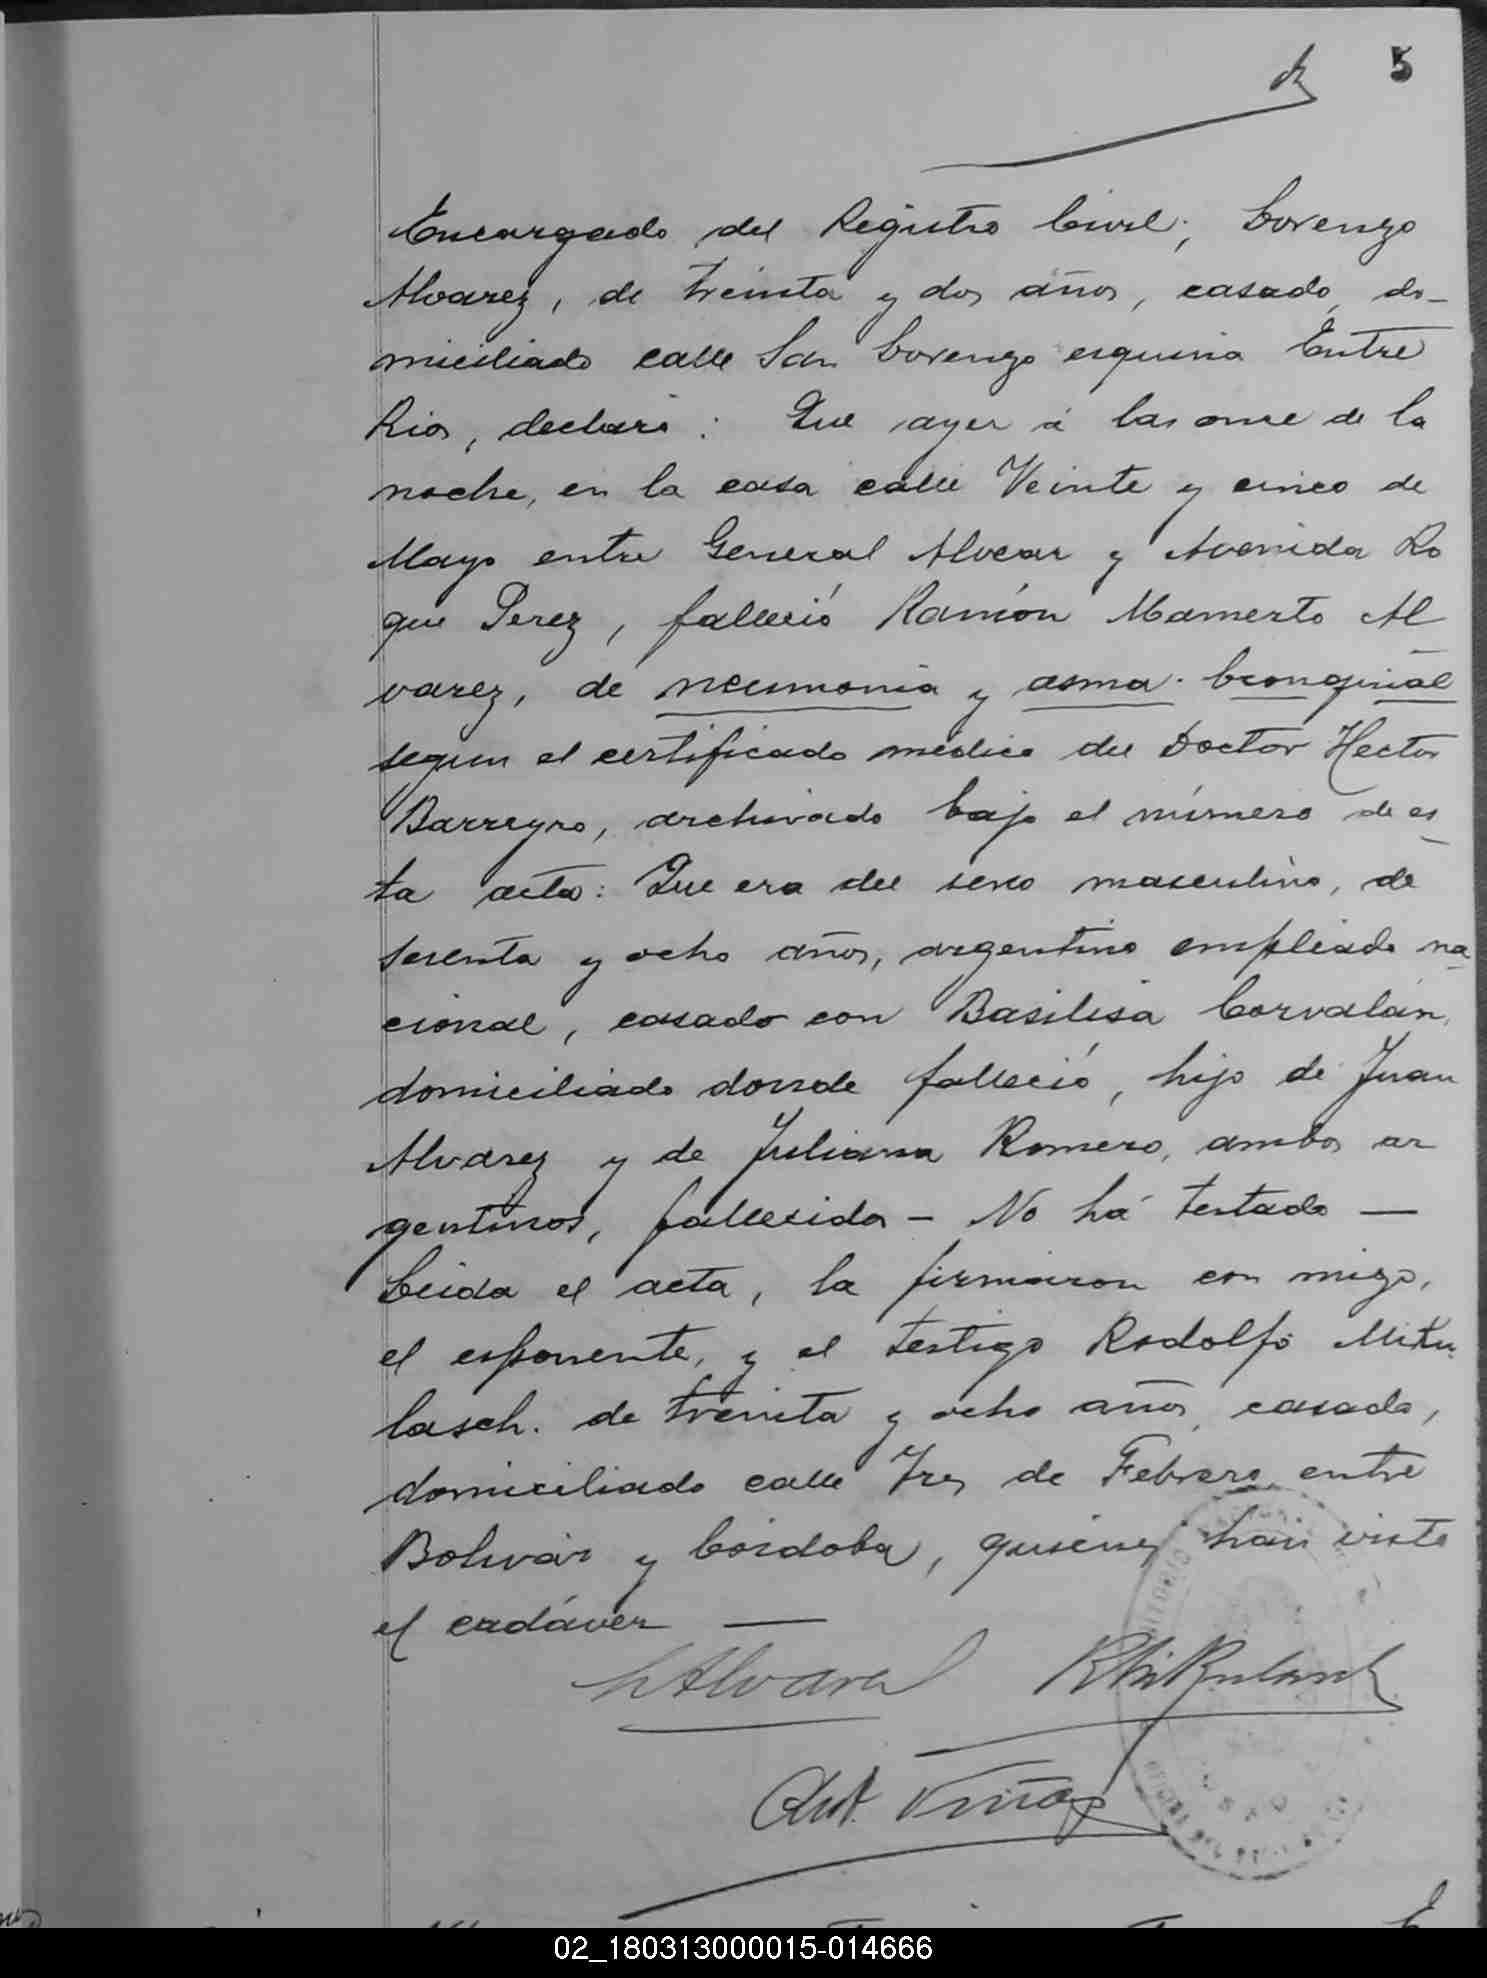 5
Encargado del Registro Civil, Lorenzo
Alvarez, de treinta y dos años, casado, do-
miciliado calle San Lorenzo esquina Entre
Rios, declaró: Que ayer á las once de la
noche, en la casa calle Veinte y cinco de
Mayo entre General Alvear y Avenida Ro
que Perez, falleció Ramón Mamerto Al
varez, de neumonia y asma bronquial
segun el certificado médico del Doctor Hector
Barreyro, archivado bajo el número de es-
ta acta: Que era del sexo masculino, de
sesenta y ocho años, argentino empleado na-
cional, casado con Basilisa Corvalán,
domiciliado donde falleció, hijo de Juan
Alvarez y de Juliana Romero, ambos ar
gentinos, fallecidos - No há testado —
Leida el acta, la firmaron con migo,
el esponente, y el testigo Rodolfo
lasch. de treinta y ocho años, casado,
domiciliado calle Tres de Febrero entre
Bolivar y Córdoba, quienes han visto
el cadáver —
LAlvarez
Ant. Viñas
02_180313000015-014666